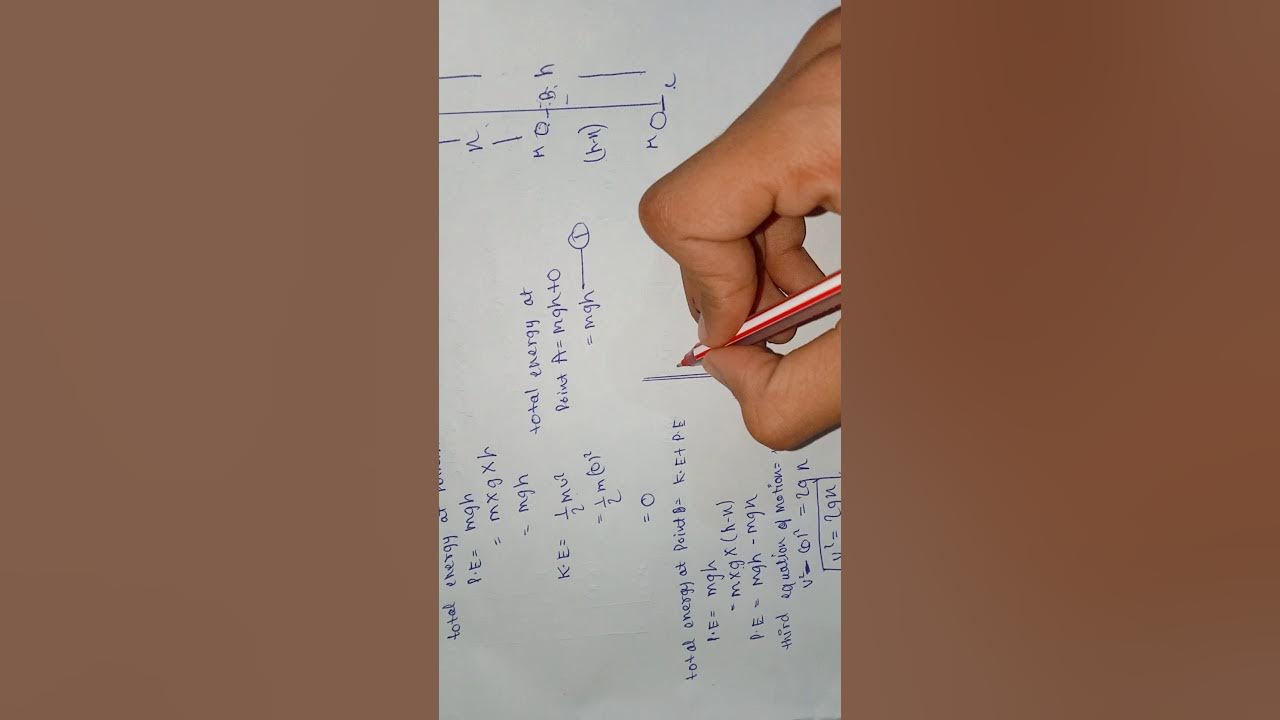 total energy at
P.E = mgh
= m×g×h
= mgh
K.E = 1/2 mv²
= 1/2 m(0)²
= 0
total energy at
Point A = mgh+0
= mgh — ①
x
B
h
(h-x)
total energy at Point B = K.E + P.E
P.E = mgh
= m×g×(h-x)
P.E = mgh - mgx
third equation of motion =
v² - (0)² = 2gx
v² = 2gx